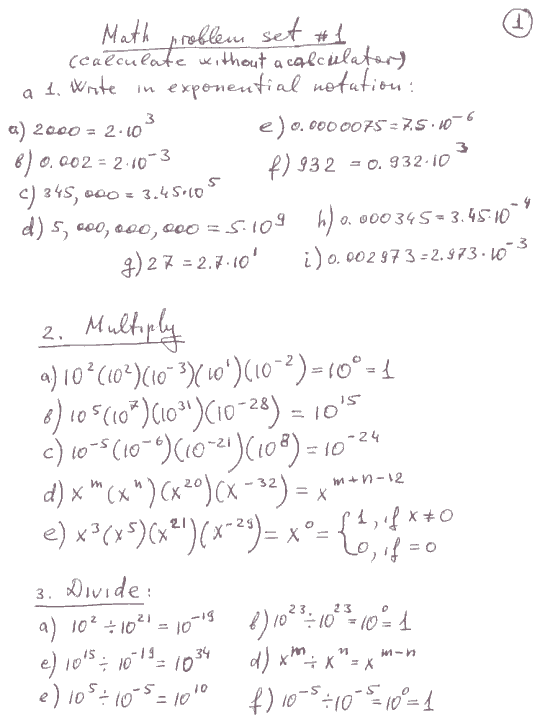 1
Math problem set #1
(calculate without a calculator)
a 1. Write in exponential notation:
a) 2000 = 2·10³ e) 0.0000075 = 7.5·10⁻⁶
b) 0.002 = 2·10⁻³ f) 932 = 0.932·10³
c) 345,000 = 3.45·10⁵
d) 5,000,000,000 = 5·10⁹ h) 0.000345 = 3.45·10⁻⁴
g) 27 = 2.7·10¹ i) 0.002973 = 2.973·10⁻³
2. Multiply
a) 10²(10²)(10⁻³)(10¹)(10⁻²) = 10⁰ = 1
b) 10⁵(10⁷)(10³¹)(10⁻²⁸) = 10¹⁵
c) 10⁻⁵(10⁻⁶)(10⁻²¹)(10⁸) = 10⁻²⁴
d) x^m(x^n)(x²⁰)(x⁻³²) = x^(m+n-12)
e) x³(x⁵)(x²¹)(x⁻²⁹) = x⁰ = {1, if x≠0
0, if =0
3. Divide:
a) 10² ÷ 10²¹ = 10⁻¹⁹ b) 10²³ ÷ 10²³ = 10⁰ = 1
c) 10¹⁵ ÷ 10⁻¹⁹ = 10³⁴ d) x^m ÷ x^n = x^(m-n)
e) 10⁵ ÷ 10⁻⁵ = 10¹⁰ f) 10⁻⁵ ÷ 10⁻⁵ = 10⁰ = 1